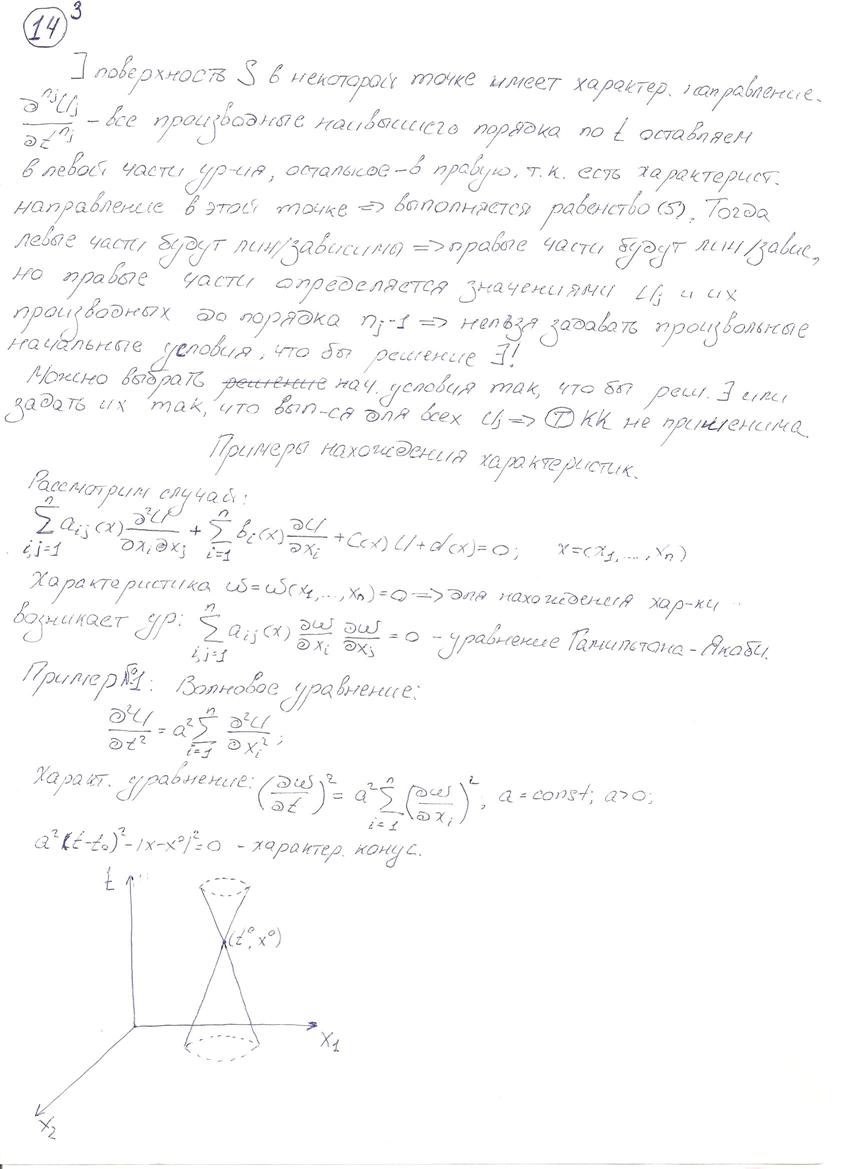 14 3
∃ поверхность S в некоторой точке имеет характер. направление.
∂^{n_j}U_j/∂t^{n_j} – все производные наивысшего порядка по t оставляем
в левой части ур-ия, остальное – в правую. т.к. есть характерист.
направление в этой точке => выполняется равенство (5). Тогда
левые части будут лин/зависимы => правые части будут лин/завис,
но правые части определяется значениями U_j и их
производных до порядка n_j-1 => нельзя задавать произвольные
начальные условия, что бы решение ∃!
Можно выбрать решение нач. условия так, что бы реш. ∃ или
задать их так, что вып-ся для всех U_j => Ⓣ КК не применима.
Примеры нахождения характеристик.
Рассмотрим случай:
∑_{i,j=1}^{n} a_{ij}(x) ∂²U/∂x_i∂x_j + ∑_{i=1}^{n} b_i(x) ∂U/∂x_i + C(x)U + d(x) = 0; x=(x_1,...,x_n)
Характеристика ω=ω(x_1,...,x_n)=0 => для нахождения хар-ки
возникает ур: ∑_{i,j=1}^{n} a_{ij}(x) ∂ω/∂x_i ∂ω/∂x_j = 0 – уравнение Гамильтона-Якоби.
Пример №1: Волновое уравнение:
∂²U/∂t² = a² ∑_{i=1}^{n} ∂²U/∂x_i²;
Характ. уравнение: (∂ω/∂t)² = a² ∑_{i=1}^{n} (∂ω/∂x_i)²; a=const; a>0;
a²(t-t_0)²-|x-x⁰|²=0 – характер. конус.
t
(t⁰,x⁰)
x_1
x_2